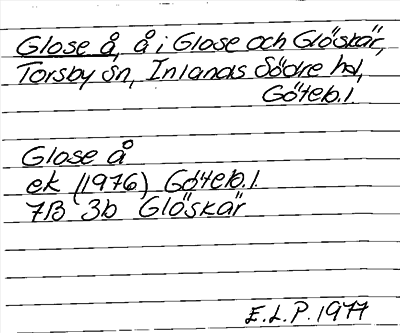 Glose å, å i Glose och Glöskär,
Torsby sn, Inlands Södre hd,
Göteb.l.
Glose å
ek (1976) Göteb.l.
7B 3b Glöskär
E.L.P. 1977